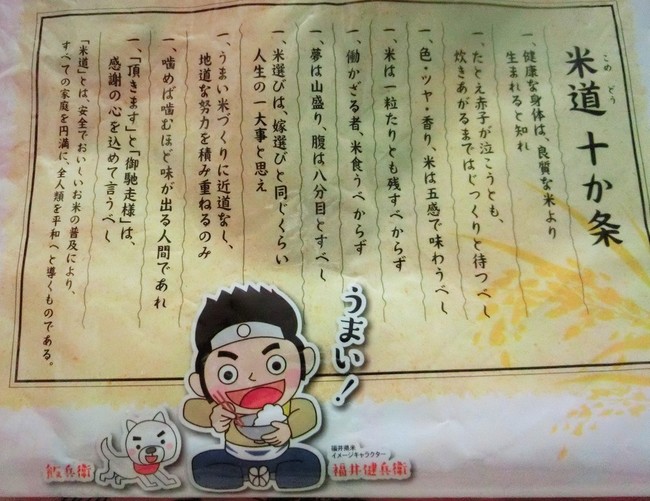 こめどう
米道 十か条
一、健康な身体は、良質な米より
生まれると知れ
一、たとえ赤子が泣こうとも、
炊きあがるまではじっくりと待つべし
一、色・ツヤ・香り、米は五感で味わうべし
一、米は一粒たりとも残すべからず
一、働かざる者、米食うべからず
一、夢は山盛り、腹は八分目とすべし
一、米選びは、嫁選びと同じくらい
人生の一大事と思え
一、うまい米づくりに近道なし、
地道な努力を積み重ねるのみ
一、噛めば噛むほど味が出る人間であれ
一、「頂きます」と「御馳走様」は、
感謝の心を込めて言うべし
「米道」とは、安全でおいしいお米の普及により、
すべての家庭を円満に、全人類を平和へと導くものである。
うまい!
福井県米
イメージキャラクター
福井健兵衛
兵衛